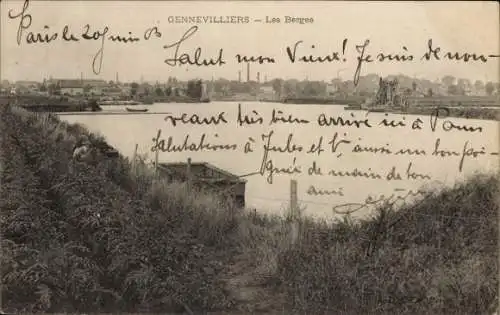 GENNEVILLIERS - Les Berges
Paris le 20 juin 03
Salut mon Vieux! Je suis de nou-
veaux très bien arrivé ici à Paris
Salutations à Jules et toi aussi un bon poi-
gnée de main de ton
ami